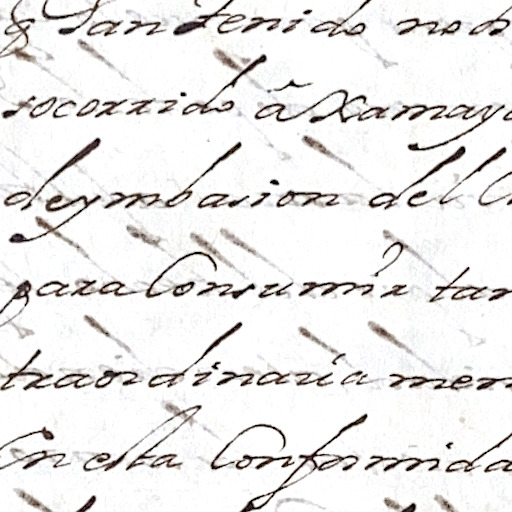 q han tenido no h
socorrido â Xamayc
deymbasion del C
para Consumir tan
traordinaria men
En esta Conformida